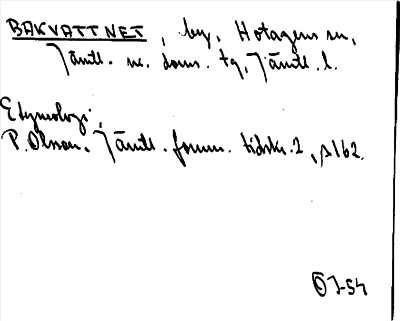 BAKVATTNET, by, Hotagens sn,
Jämtl. n. doms. tg, Jämtl. l.
Etymologi.
P. Olsson, Jämtl. fornm. tidskr. 2, s 162.
OJ-54